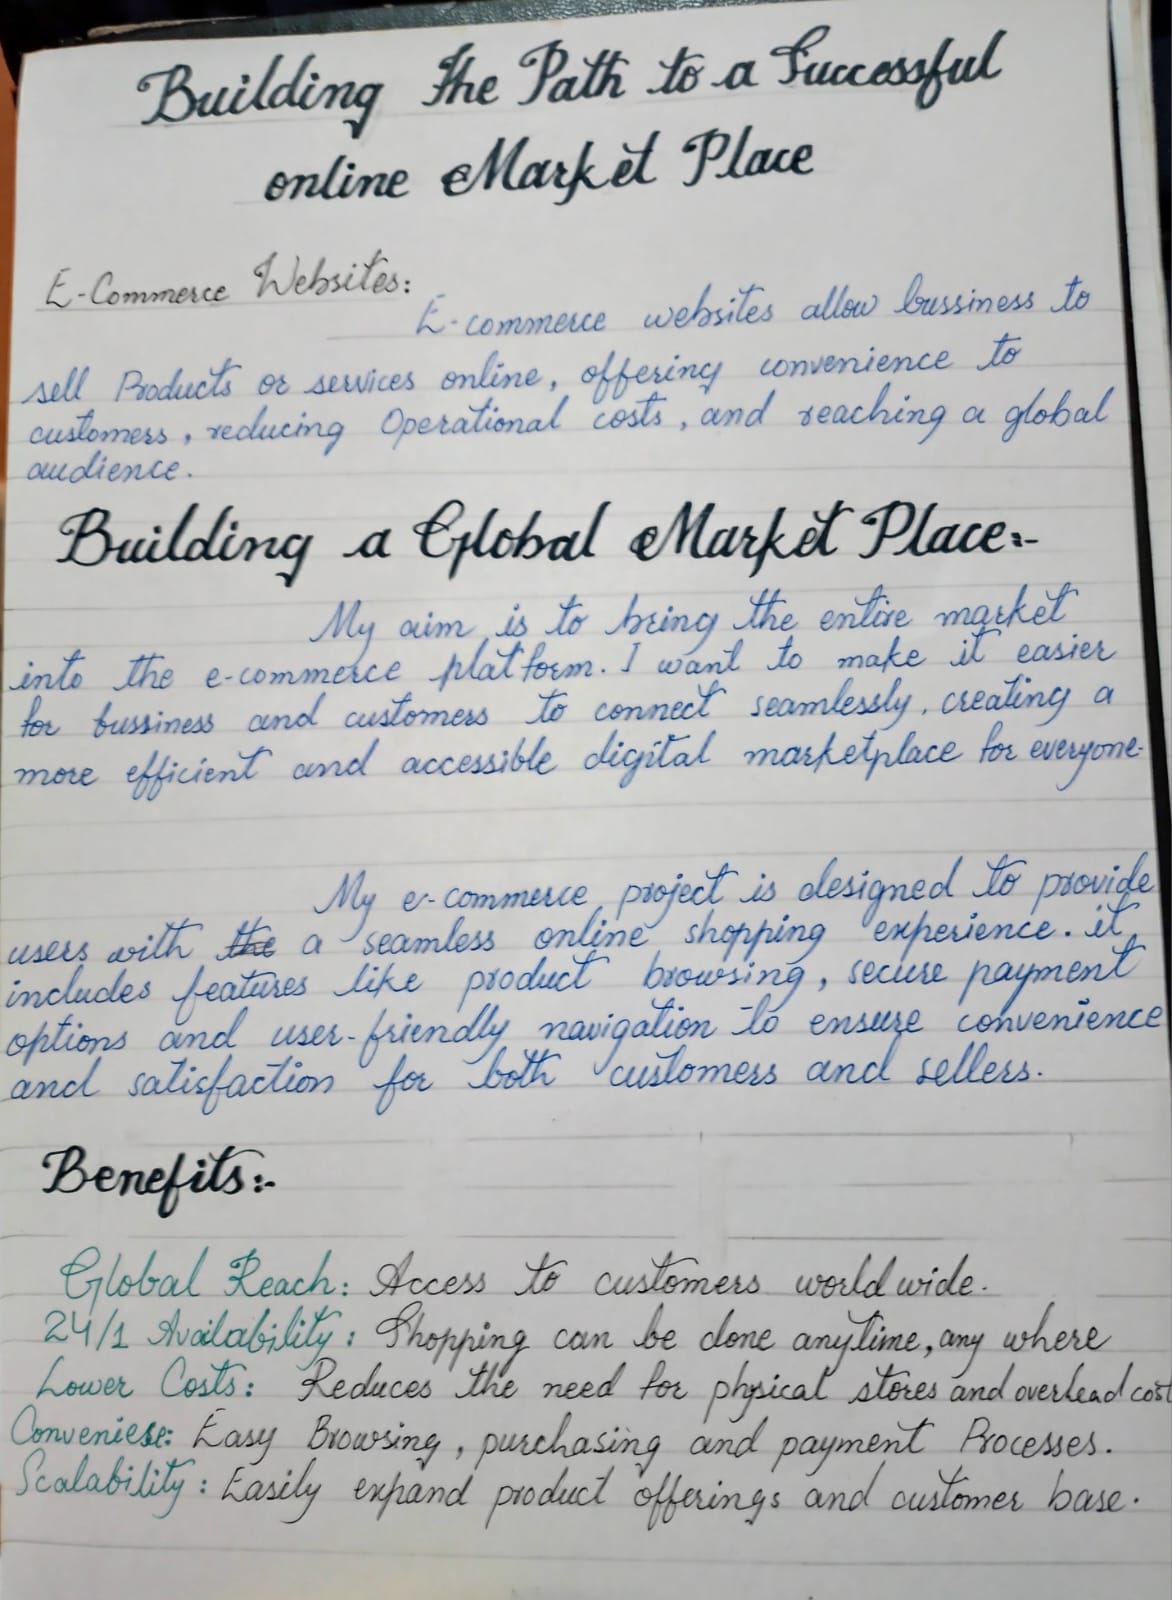 Building the Path to a Successful
online Market Place
E-Commerce Websites:
E-commerce websites allow bussiness to
sell Products or services online, offering convenience to
customers, reducing Operational costs, and reaching a global
audience.
Building a Global Market Place:-
My aim is to bring the entire market
into the e-commerce platform. I want to make it easier
for bussiness and customers to connect seamlessly, creating a
more efficient and accessible digital marketplace for everyone.
My e-commerce project is designed to provide
users with the a seamless online shopping experience. it
includes features like product browsing, secure payment
options and user-friendly navigation to ensure convenience
and satisfaction for both customers and sellers.
Benefits:-
Global Reach: Access to customers world wide.
24/1 Availability: Shopping can be done anytime, any where
Lower Costs: Reduces the need for physical stores and overhead cost
Conveniese: Easy Browsing, purchasing and payment Processes.
Scalability: Easily expand product offerings and customer base.